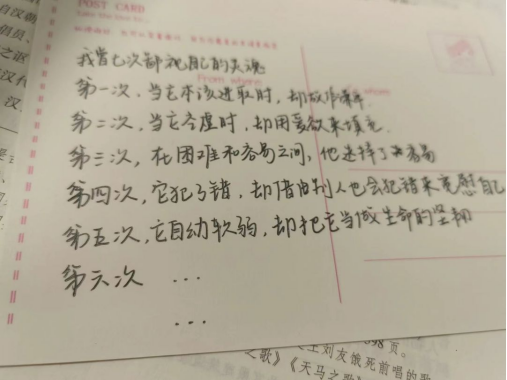 POST CARD
我曾七次鄙视自己的灵魂
From where:
第一次，当它本该进取时，却故作谦卑
where
第二次，当它空虚时，却用爱欲来填充.
第三次，在困难和容易之间，他选择了容易
第四次，它犯了错，却借由别人也会犯错来宽慰自己
第五次，它自幼软弱，却把它当成生命的坚韧
第六次 ...
...
自汉朝
倡员、
之讴
汉代
汉
98页。
王刘友饿死前唱的歌
之歌》《天马之歌》